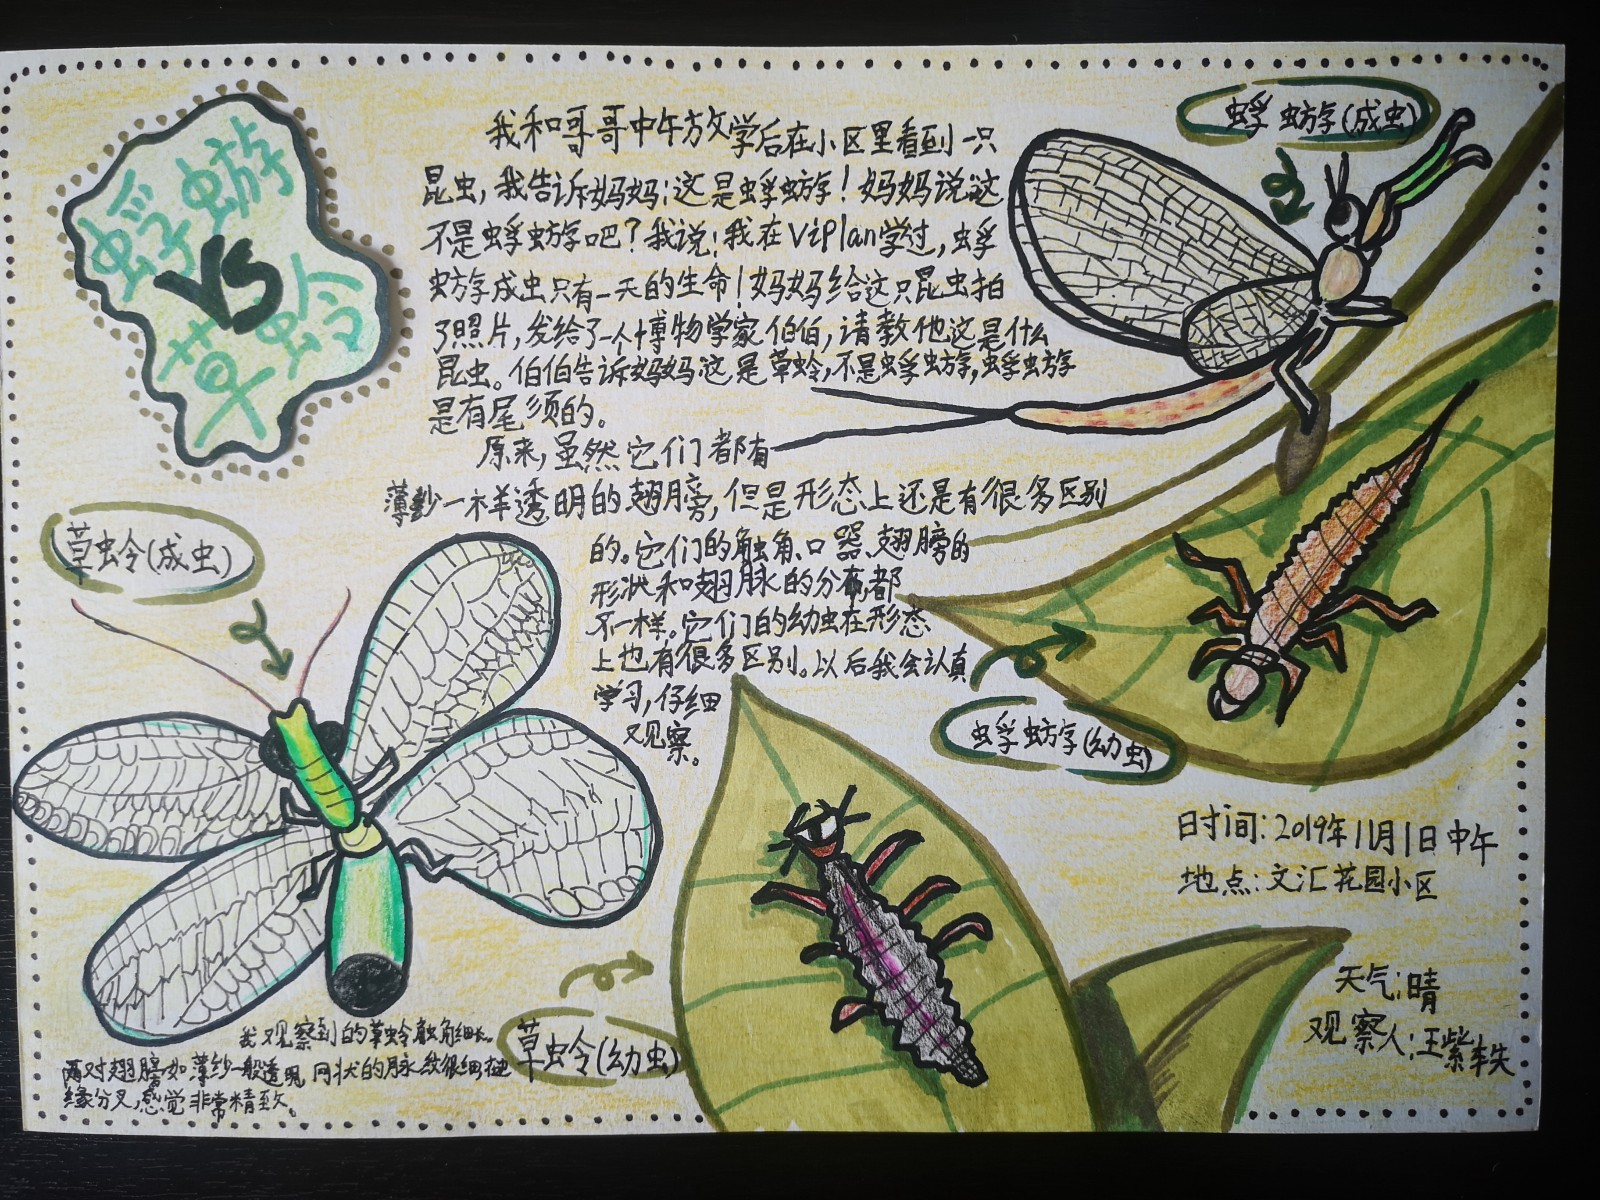 蜉蝣
VS
草蛉
我和哥哥中午放学后在小区里看到一只
昆虫，我告诉妈妈：这是蜉蝣！妈妈说这
不是蜉蝣吧？我说：我在ViPlan学过，蜉
蝣成虫只有一天的生命！妈妈给这只昆虫拍
了照片，发给了一个博物学家伯伯，请教他这是什么
昆虫。伯伯告诉妈妈这是草蛉，不是蜉蝣，蜉蝣
是有尾须的。
原来，虽然它们都有
薄纱一样透明的翅膀，但是形态上还是有很多区别
的。它们的触角、口器、翅膀的
形状和翅脉的分布都
不一样。它们的幼虫在形态
上也有很多区别。以后我会认真
学习，仔细
观察。
蜉蝣(成虫)
草蛉(成虫)
蜉蝣(幼虫)
草蛉(幼虫)
我观察到的草蛉触角细长。
两对翅膀如薄纱一般透明，网状的脉纹很细
缘分叉，感觉非常精致。
时间：2019年11月1日中午
地点：文汇花园小区
天气：晴
观察人：王紫轶